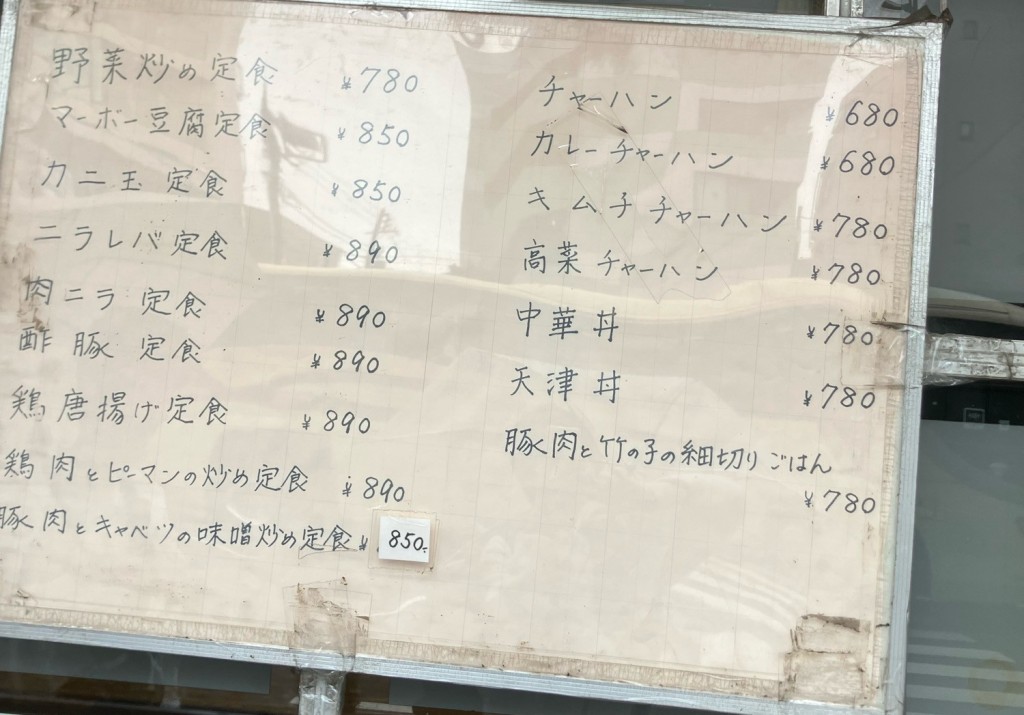 野菜炒め定食 ¥780
マーボー豆腐定食 ¥850
カニ玉定食 ¥850
ニラレバ定食 ¥890
肉ニラ定食 ¥890
酢豚定食 ¥890
鶏唐揚げ定食 ¥890
鶏肉とピーマンの炒め定食 ¥890
豚肉とキャベツの味噌炒め定食 ¥850-
チャーハン ¥680
カレーチャーハン ¥680
キムチチャーハン ¥780
高菜チャーハン ¥780
中華丼 ¥780
天津丼 ¥780
豚肉と竹の子の細切りごはん
¥780